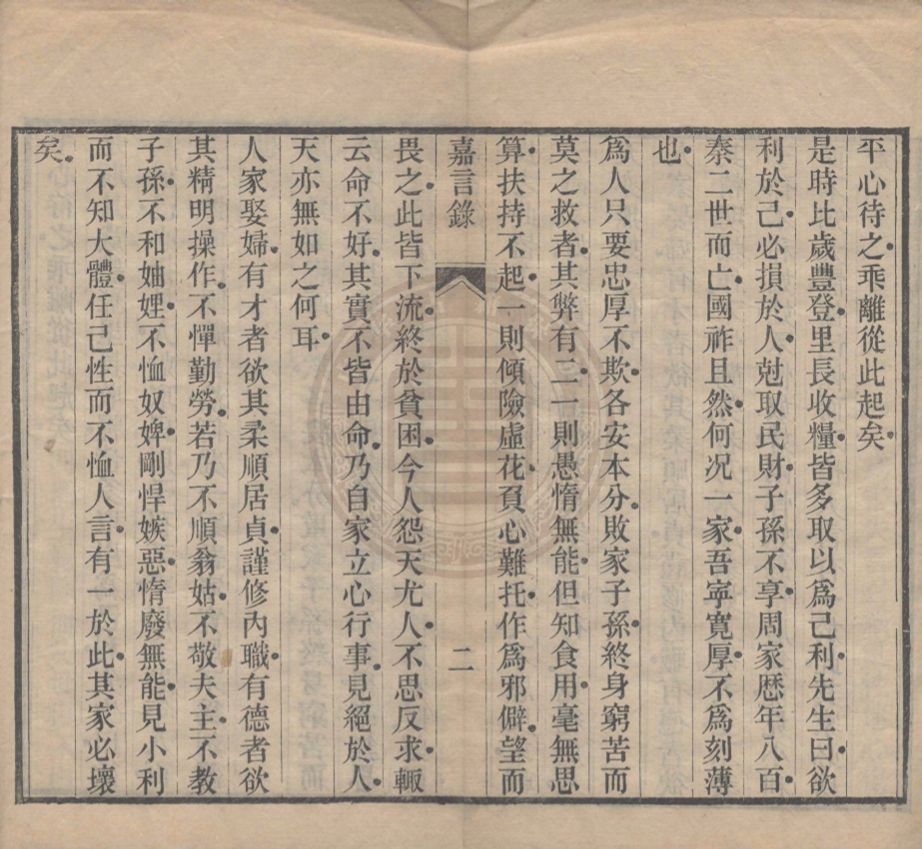 平心待之乖離從此起矣
是時比歲豐登里長收糧皆多取以爲己利先生曰欲
利於己必損於人尅取民財子孫不享周家歷年八百
秦二世而亡國祚且然何况一家吾寧寬厚不爲刻薄
也
爲人只要忠厚不欺各安本分敗家子孫終身窮苦而
莫之救者其弊有二一則愚惰無能但知食用毫無思
算扶持不起一則傾險虛花負心難托作爲邪僻望而
嘉言錄 二
畏之此皆下流終於貧困今人怨天尤人不思反求輒
云命不好其實不皆由命乃自家立心行事見絕於人
天亦無如之何耳
人家娶婦有才者欲其柔順居貞謹修內職有德者欲
其精明操作不憚勤勞若乃不順翁姑不敬夫主不教
子孫不和妯娌不恤奴婢剛悍嫉惡惰廢無能見小利
而不知大體任己性而不恤人言有一於此其家必壞
矣